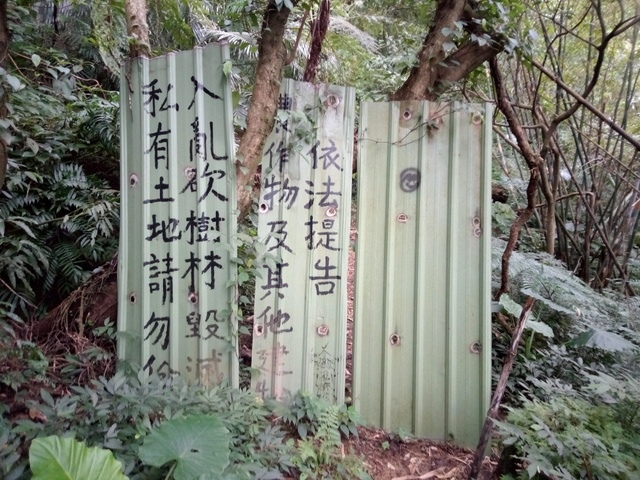 私有土地請勿侵
入亂砍樹林毀滅
作物及其他
依法提告